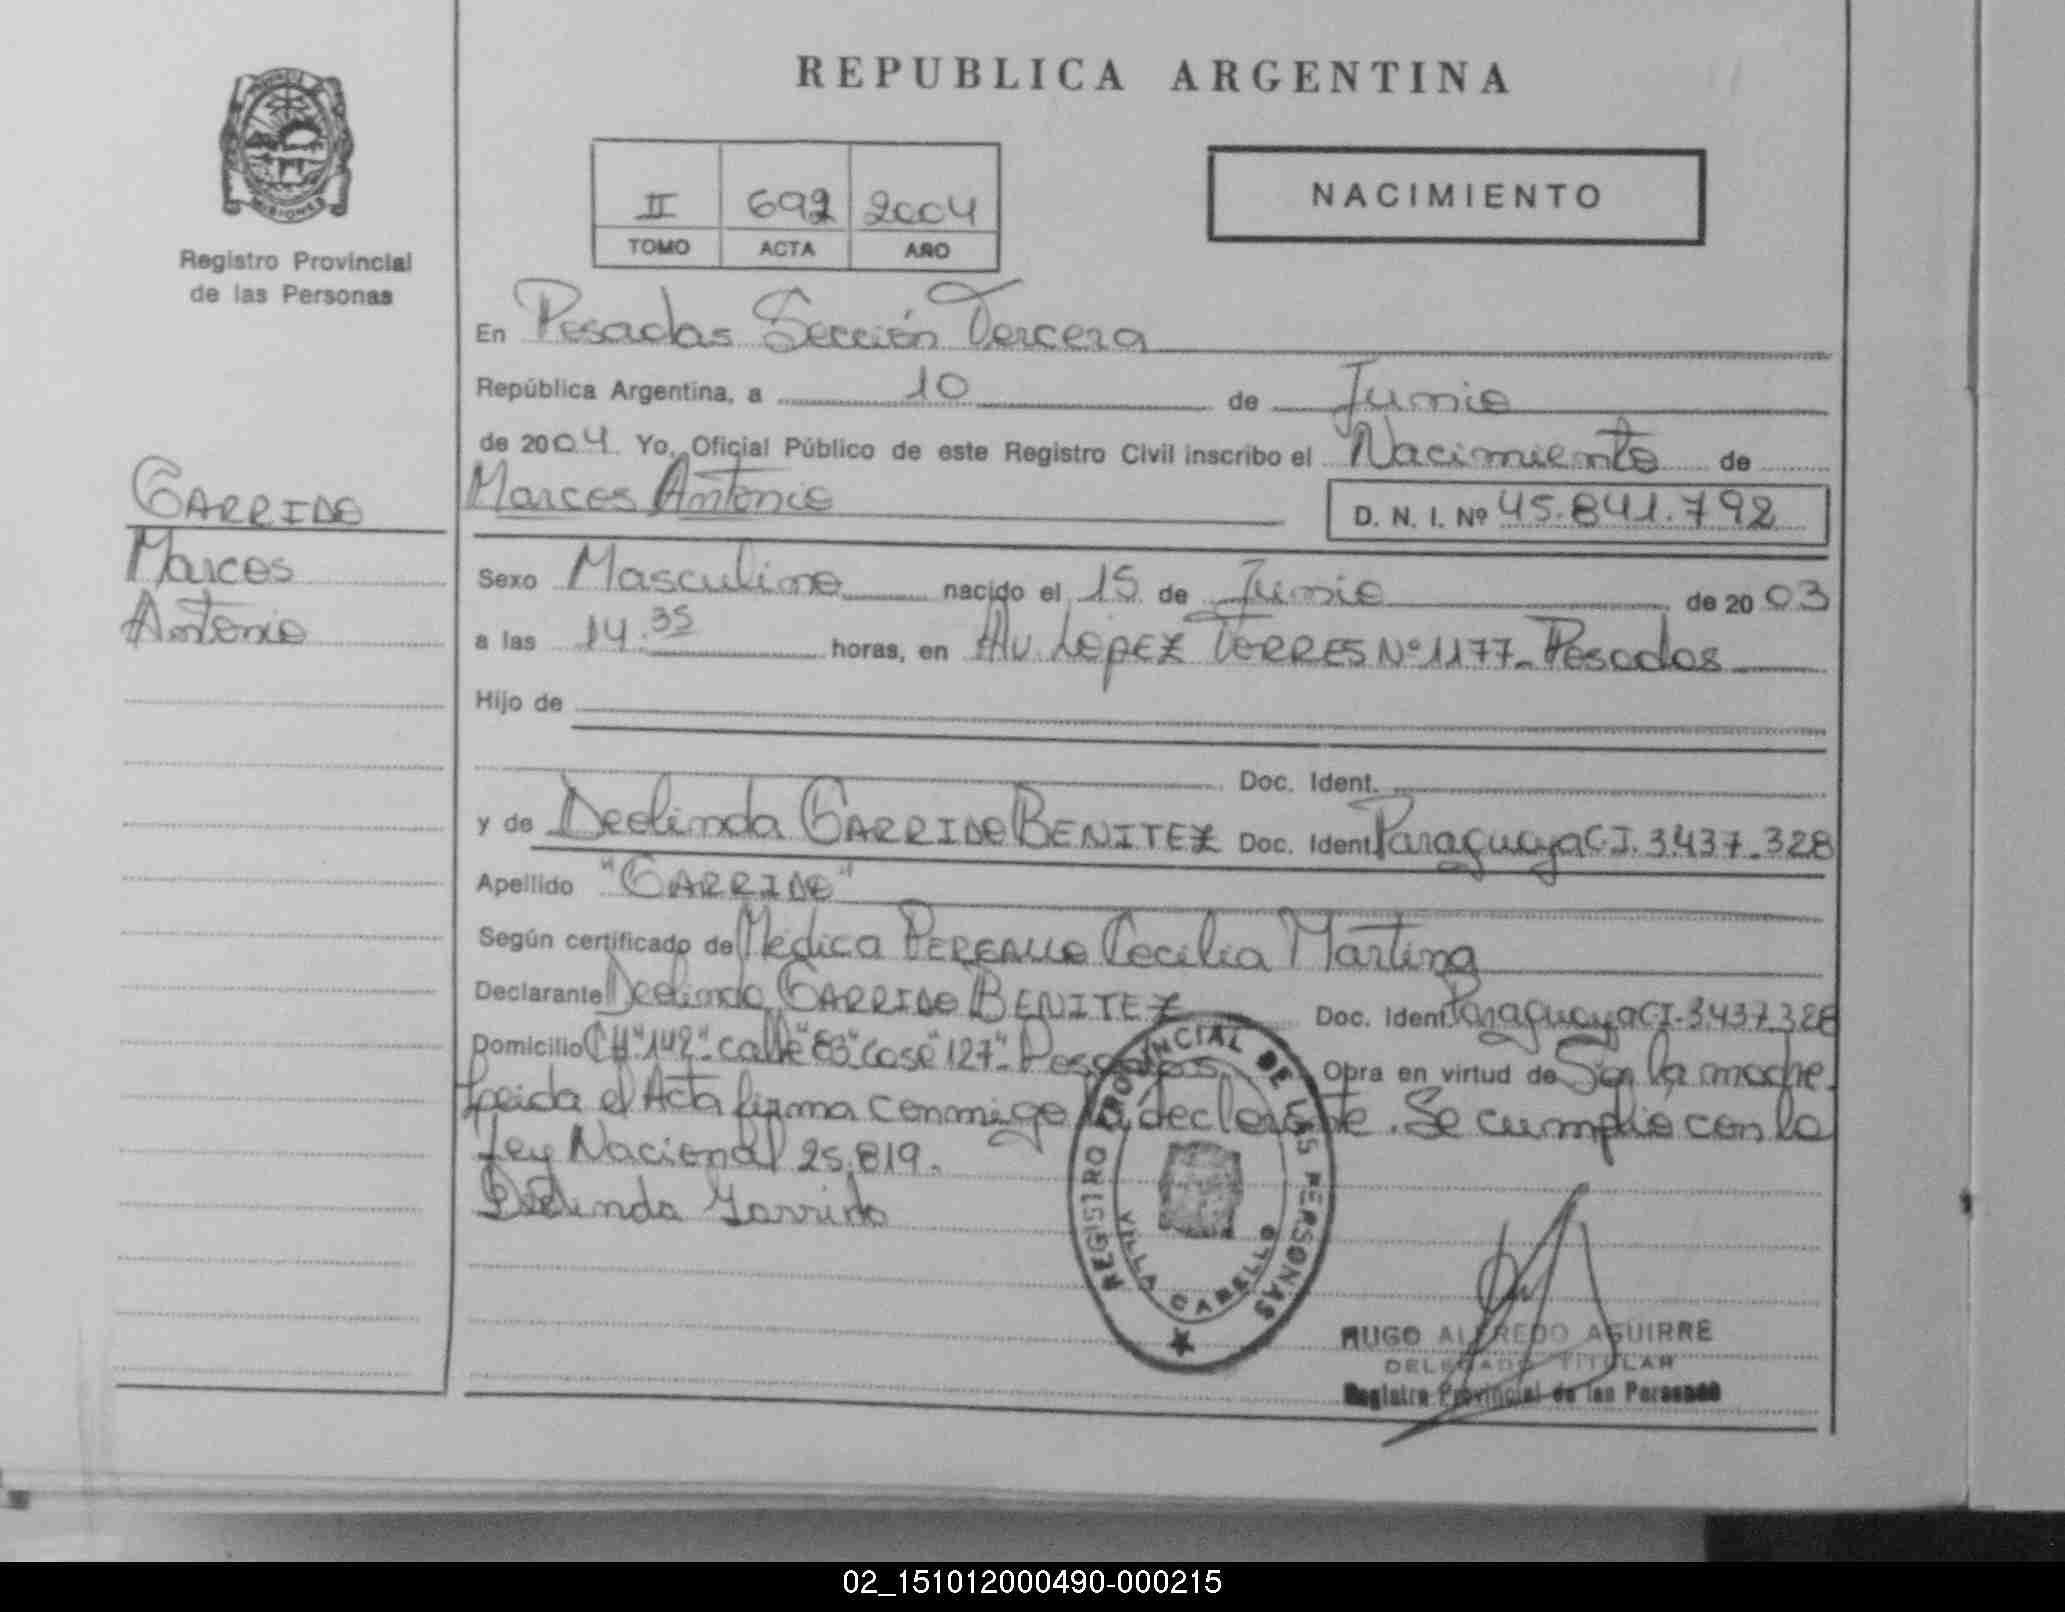 REPUBLICA ARGENTINA
MISIONES
Registro Provincial
de las Personas
II 692 2004
TOMO ACTA AÑO
NACIMIENTO
En Posadas Sección Tercera
República Argentina, a 10 de Junio
de 2004. Yo, Oficial Público de este Registro Civil inscribo el Nacimiento de
Marcos Antonio
D. N. I. Nº 45.841.792
GARRIDO
Marcos
Antonio
Sexo Masculino nacido el 15 de Junio de 2003
a las 14.35 horas, en Av. LÓPEZ TORRES Nº 1177- Posadas
Hijo de
Doc. Ident.
y de Deolinda GARRIDO BENITEZ Doc. Ident. Paraguaya C.I. 3.437.328
Apellido "GARRIDO"
Según certificado de Médica Cecilia Martina
Declarante Deolinda GARRIDO BENITEZ Doc. Ident. Paraguaya C.I. 3.437.328
Domicilio CH "142" - calle "83" casa "127" - Posadas Obra en virtud de Ser la madre.
Leida el Acta firma conmigo la declarante. Se cumplio con la
Ley Nacional 25.819.
Deolinda Garrido
REGISTRO PROVINCIAL DE LAS PERSONAS
VILLA CABELLO
HUGO ALFREDO AGUIRRE
DELEGADO TITULAR
Registro Provincial de las Personas
02_151012000490-000215